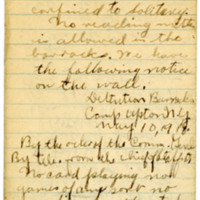 confined to Solitary.
No reading matter
is allowed in the
barracks. We have
the following notice
on the wall.
Detention Barracks
Camp Upton N.Y.
May 10, 1918
By the order of the Comm.
By
No card playing nor
games of any sort no